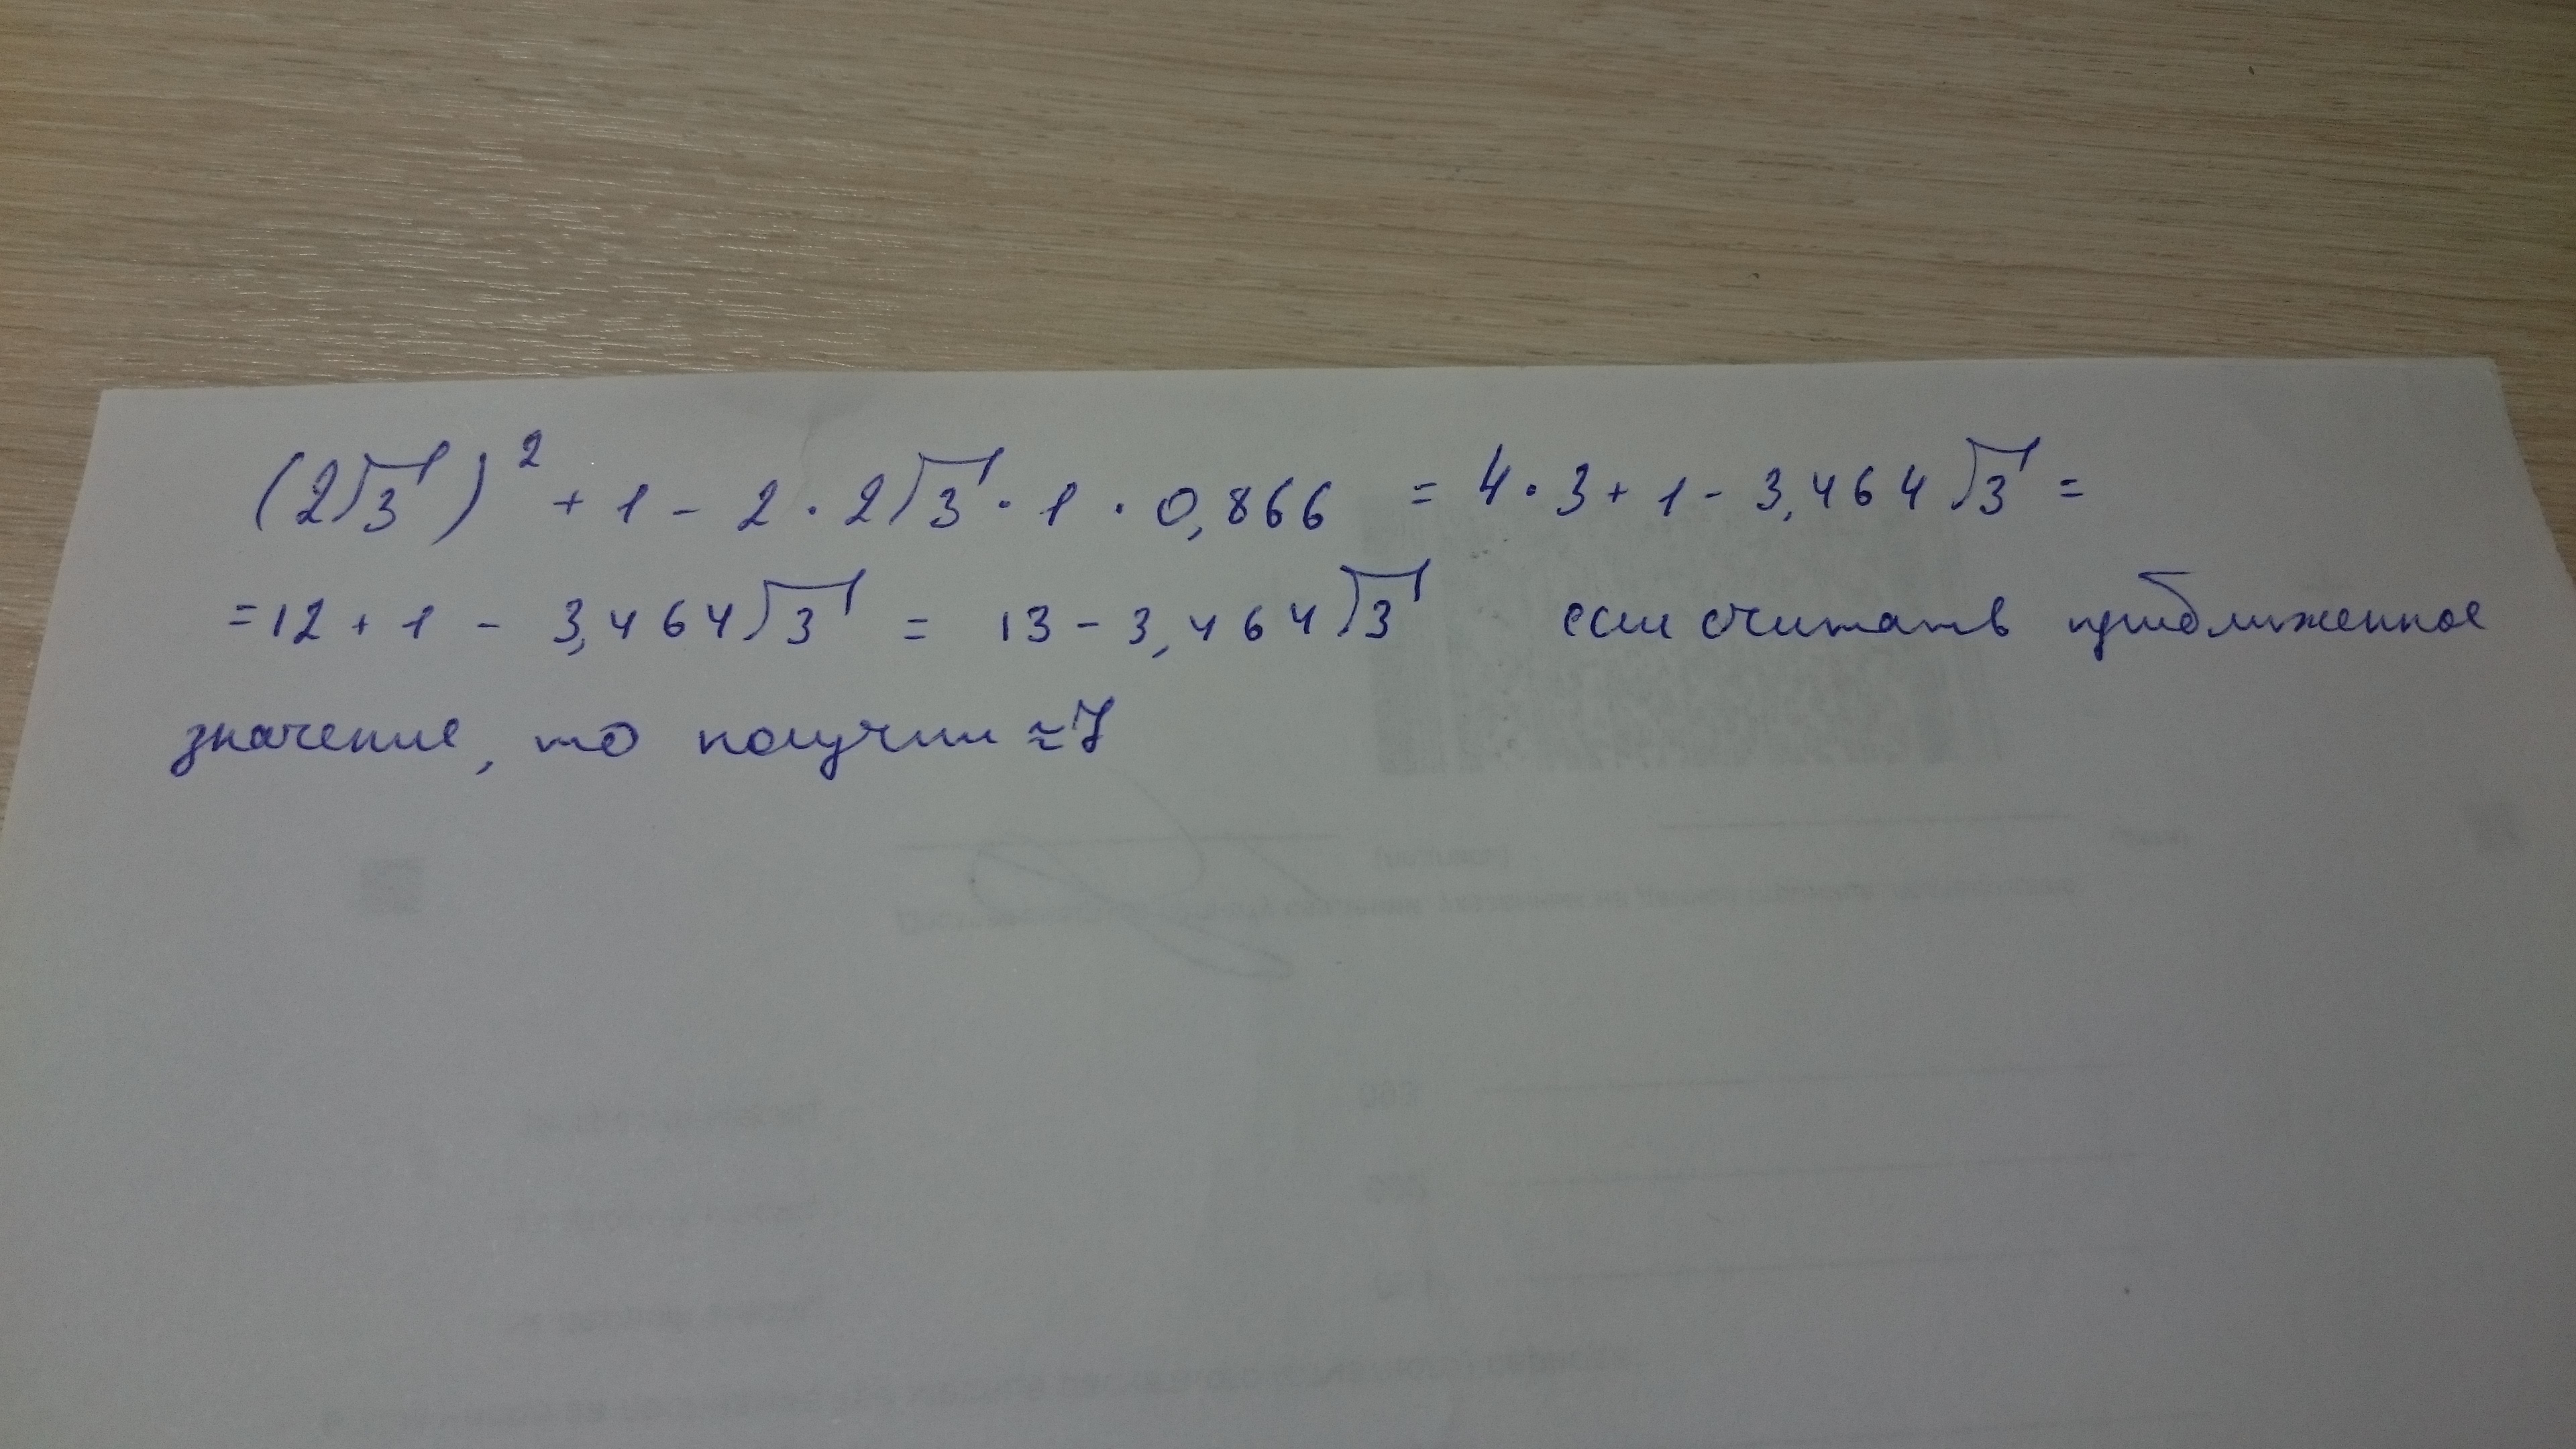 (2√3)² + 1 - 2 · 2√3 · 1 · 0,866 = 4 · 3 + 1 - 3,464√3 =
= 12 + 1 - 3,464√3 = 13 - 3,464√3 если считать приближенное
значение, то получим ≈ 7